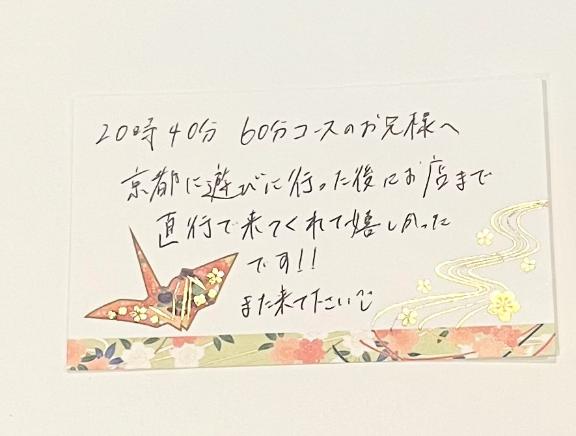 20時40分 60分コースのお兄様へ
京都に遊びに行った後にお店まで
直行で来てくれて嬉しかった
です!!
また来てたさい